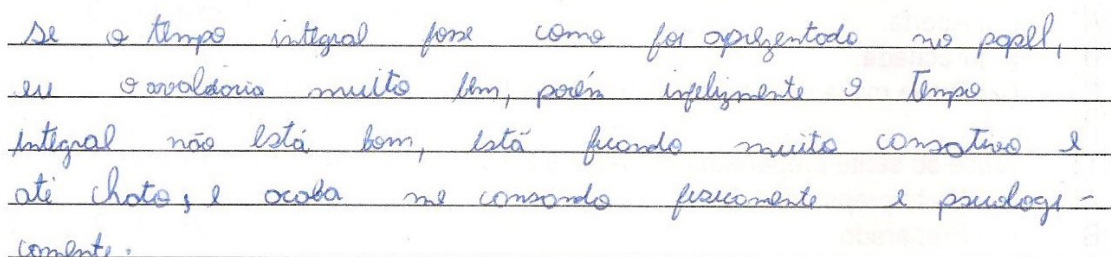 se o tempo integral fosse como foi aprezentado no papel,
eu o avaldoria muito bem, porém infelizmente o tempo
integral não está bom, está ficando muito cansativo e
até chato, e acaba me cansando fisicamente e psicologi-
camente.